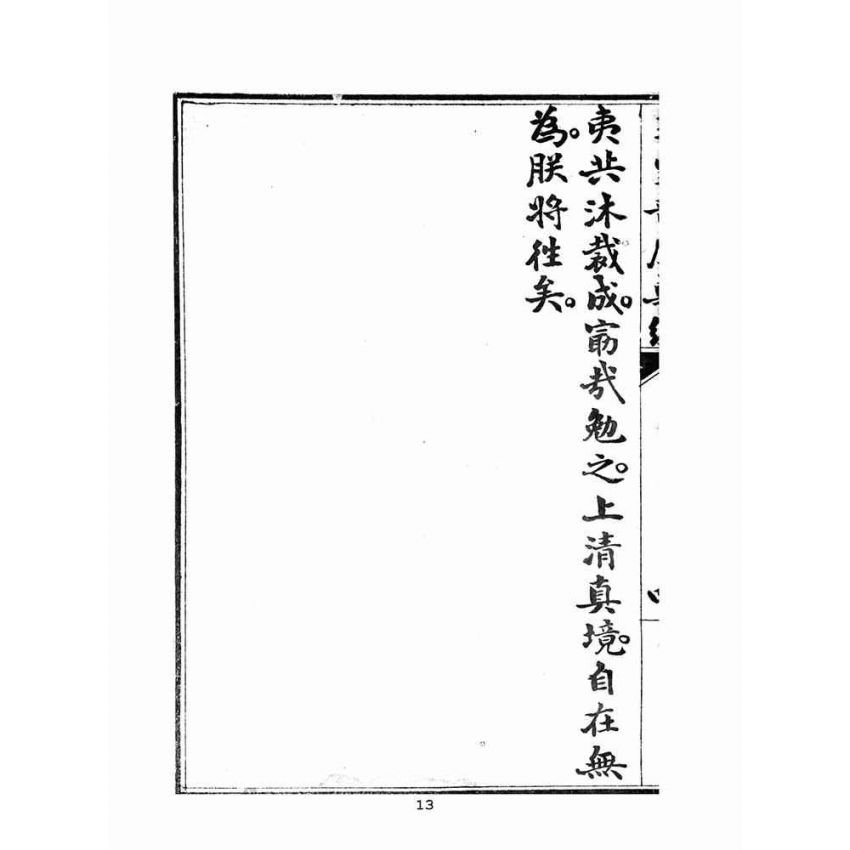 夷共沐裁成。勗哉勉之。上清真境。自在無
為。朕將徃矣。
13